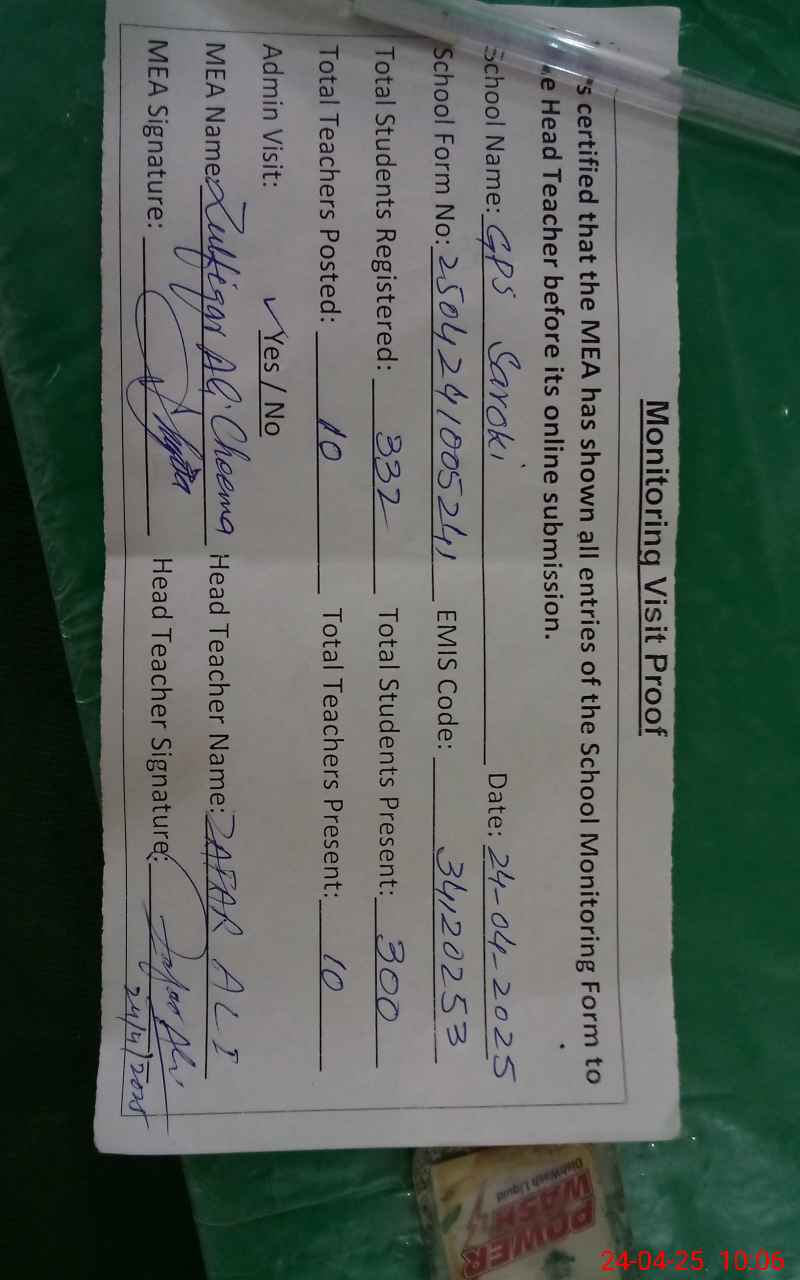 Monitoring Visit Proof
's certified that the MEA has shown all entries of the School Monitoring Form to
e Head Teacher before its online submission.
School Name: GPS Saroki Date: 24-04-2025
School Form No: 2504241005241 EMIS Code: 34120253
Total Students Registered: 332 Total Students Present: 300
Total Teachers Posted: 10 Total Teachers Present: 10
Admin Visit: ✓Yes / No
MEA Name: Zulfiqar Ali Cheema Head Teacher Name: ZAFAR ALI
MEA Signature: Head Teacher Signature: Zafar Ali
24/4/2025
POWER
WASH
DishWash Liquid
24-04-25 10:06